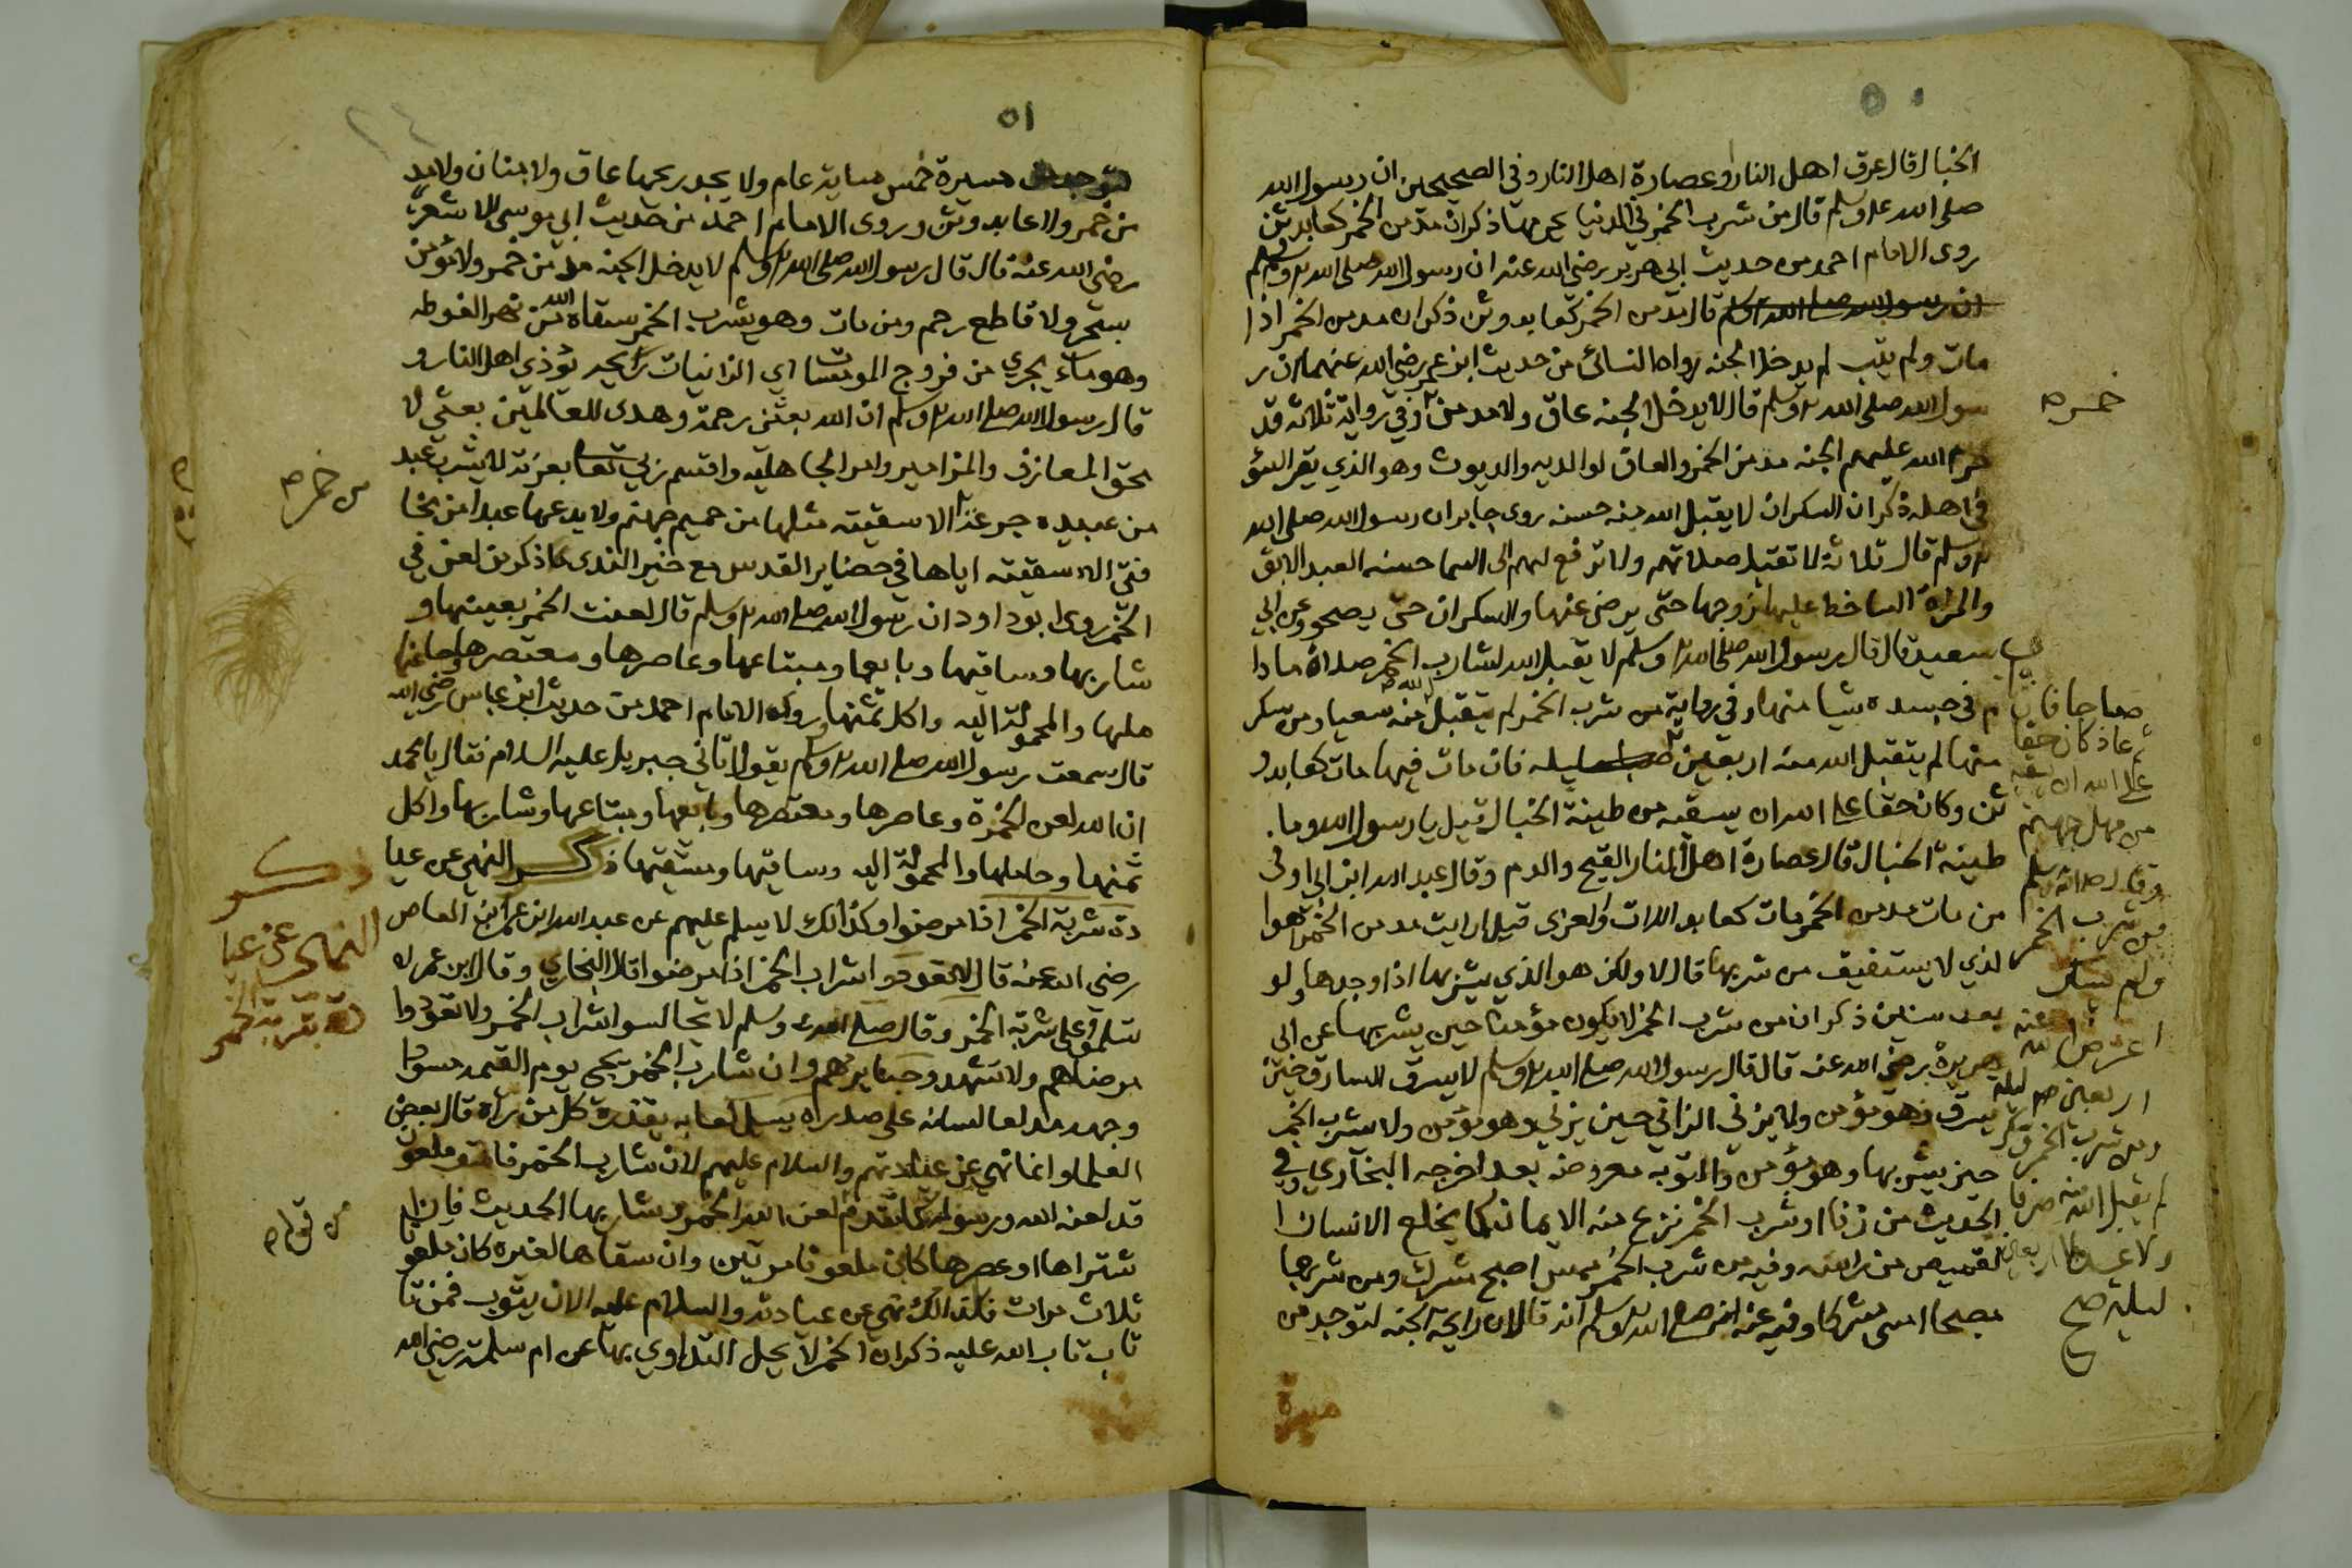 ٥٠
الخبال قال عرق اهل النار او عصارة اهل النار وفي الصحيحين ان رسول الله
صلى الله عليه وسلم قال من شرب الخمر في الدنيا يحرمها ذكر ان مدمن الخمر كعابد وثن
روى الامام احمد من حديث ابي هريره رضي الله عنه ان رسول الله صلى الله عليه وسلم
ان رسول الله صلى الله عليه وسلم قال مدمن الخمر كعابد وثن ذكر ان مدمن الخمر اذا
مات ولم يتب لم يدخل الجنه رواه النسائي من حديث ابن عمر رضي الله عنهما ان ر
سول الله صلى الله عليه وسلم قال لا يدخل الجنه عاق ولا مدمن وفي رواية ثلاثه قد
خمر صح
حرم الله عليهم الجنه مدمن الخمر والعاق لوالديه والديوث وهو الذي يقر السؤ
في اهله ذكر ان السكران لا يقبل الله منه حسنه روى جابر ان رسول الله صلى الله
عليه وسلم قال ثلاثة لا تقبل صلاتهم ولا ترفع لهم الى السما حسنه العبد الابق
والمراة الساخط عليها زوجها حتى يرضى عنها والسكران حتى يصحو وعن ابي
سعيد قال قال رسول الله صلى الله عليه وسلم لا يقبل الله لشارب الخمر صلاة ما دا
م في جسده شيا منها وفي رواية من شرب الخمر لم يتقبل الله منه سعيا ومن سكر
منها لم يتقبل الله منه اربعين ليله فان مات فيها مات كعابد و
ثن وكان حقا على الله ان يسقيه من طينة الخبال قيل يا رسول الله وما
طينة الخبال قال عصارة اهل النار القيح والدم وقال عبد الله ابن ابي اوفى
من مات مدمن الخمر مات كعابد اللات والعزى قيل ارايت مدمن الخمر هوا
لذي لا يستفيق من شربها قال لا ولكن هو الذي يشربها اذا وجدها ولو
بعد سنين ذكر ان من شرب الخمر لا يكون مؤمنا حين يشربها عن ابي
هريرة رضي الله عنه قال قال رسول الله صلى الله عليه وسلم لا يسرق السارق حين
يسرق وهو مؤمن ولا يزني الزاني حين يزني وهو مؤمن ولا يشرب الخمر
حين يشربها وهو مؤمن والتوبه معروضه بعد اخرجه البخاري وفي
الحديث من زنا او شرب الخمر نزع منه الايمان كما يخلع الانسان ا
لقميص من راسه وفيه من شرب الخمر ممسي اصبح مشرك ومن شربها
مصبحا امسى مشركا وفيه عنه صلى الله عليه وسلم انه قال ان رايحة الجنه لتوجد من
صباحا فان
عاد كان حقا
على الله ان يسقيه
من مهل جهنم
وقال صلى الله عليه وسلم
من شرب الخمر
ولم يسكر
اعرض الله عنه
اربعين ليله
ومن شرب الخمر وسكر
لم يقبل الله منه صرفا
ولا عدلا اربعين
ليلة صح
مسيرة
٥١
٢٤
مسيرة خمس ماية عام ولا يجد ريحها عاق ولا منان ولا مد
من خمر ولا عابد وثن وروى الامام احمد من حديث ابي موسى الاشعري
رضي الله عنه قال قال رسول الله صلى الله عليه وسلم لا يدخل الجنه مدمن خمر ولا مؤمن
بسحر ولا قاطع رحم ومن مات وهو يشرب الخمر سقاه الله من نهر الغوطه
وهو ماء يجري من فروج المومسات اي الزانيات رايحه يؤذي اهل النار و
قال رسول الله صلى الله عليه وسلم ان الله بعثني رحمة وهدى للعالمين بعثني لا
محق المعازف والمزامير وامر الجاهليه واقسم ربي تعالى بعزته لا يشرب عبد
من خمر صح
من عبيده جرعة الا سقيته مثلها من حميم جهنم ولا يدعها عبدا من مخا
فتي الا سقيته اياها في حضاير القدس مع خير الندى ما ذكر من لعن في
الخمر روى ابو داود ان رسول الله صلى الله عليه وسلم قال لعنت الخمر بعينها و
شاربها وساقيها وبايعها ومبتاعها وعاصرها ومعتصرها وحا
ملها والمحمولة اليه واكل ثمنها وروى الامام احمد من حديث ابن عباس رضي الله
قال سمعت رسول الله صلى الله عليه وسلم يقول اتاني جبريل عليه السلام فقال يا محمد
ان الله لعن الخمرة وعاصرها ومعتصرها وبايعها ومبتاعها وشاربها واكل
ثمنها وحاملها والمحمولة اليه وساقيها ومسقيها ذكر النهي عن عيا
ذكر
النهي عن عيا
دة شربة الخمر
دة شربة الخمر اذا مرضوا وكذالك لا يسلم عليهم عن عبد الله ابن عمر ابن العاص
رضي الله عنه قال لا تعودوا شراب الخمر اذا مرضوا قال البخاري وقال ابن عمر لا
تسلموا على شربة الخمر وقال صلى الله عليه وسلم لا تجالسوا شراب الخمر ولا تعودوا
مرضاهم ولا تشهدوا جنايزهم وان شارب الخمر يجي يوم القيمه مسودا
وجهه مدلعا لسانه على صدره يسيل لعابه يقذره كل من راه قال بعض
العلما وانما نهي عن عيادتهم والسلام عليهم لان شارب الخمر فاسق ملعون
قد لعنه الله ورسوله كما تقدم لعن الله الخمر وشاربها الحديث فان ا
من قوله صح
شتراها او عصرها كان ملعونا مرتين وان سقاها لغيره كان ملعونا
ثلاث مرات فلذالك نهي عن عيادته والسلام عليه الا ان يتوب فمن تا
تاب تاب الله عليه ذكر ان الخمر لا يحل التداوي بها عن ام سلمة رضي الله